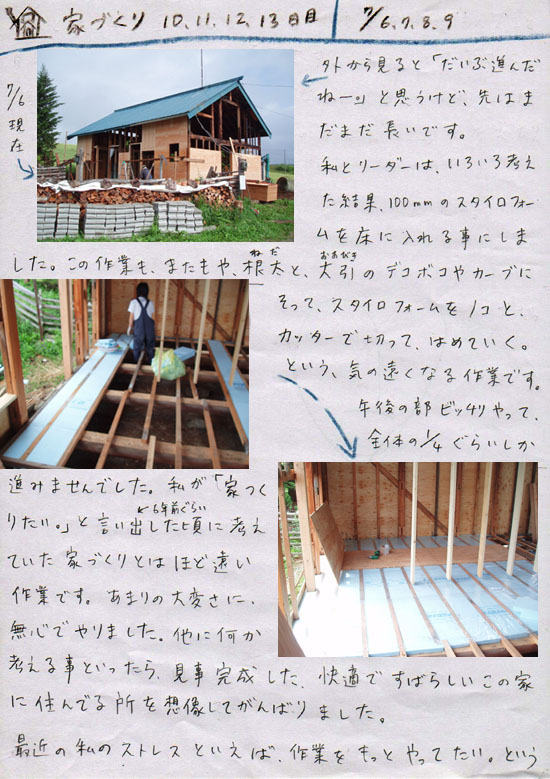 家づくり 10.11.12.13日目 7/6.7.8.9
7/6現在
外から見ると「だいぶ進んだ
ねー。」と思うけど、先はま
だまだ長いです。
私とリーダーは、いろいろ考え
た結果、100mmのスタイロフォー
ムを床に入れる事にしま
した。この作業も、またもや、根太と、大引のデコボコやカーブに
ねだ
おおびき
そって、スタイロフォームをノコと、
カッターで切って、はめていく。
という、気の遠くなる作業です。
午後の部ビッチリやって、
全体の1/4ぐらいしか
進みませんでした。私が「家つく
りたい。」と言い出した頃に考え
6年前ぐらい
ていた家づくりとはほど遠い
作業です。あまりの大変さに、
無心でやりました。他に何か
考える事といったら、見事完成した、快適ですばらしいこの家
に住んでる所を想像してがんばりました。
最近の私のストレスといえば、作業をもっとやってたい。という